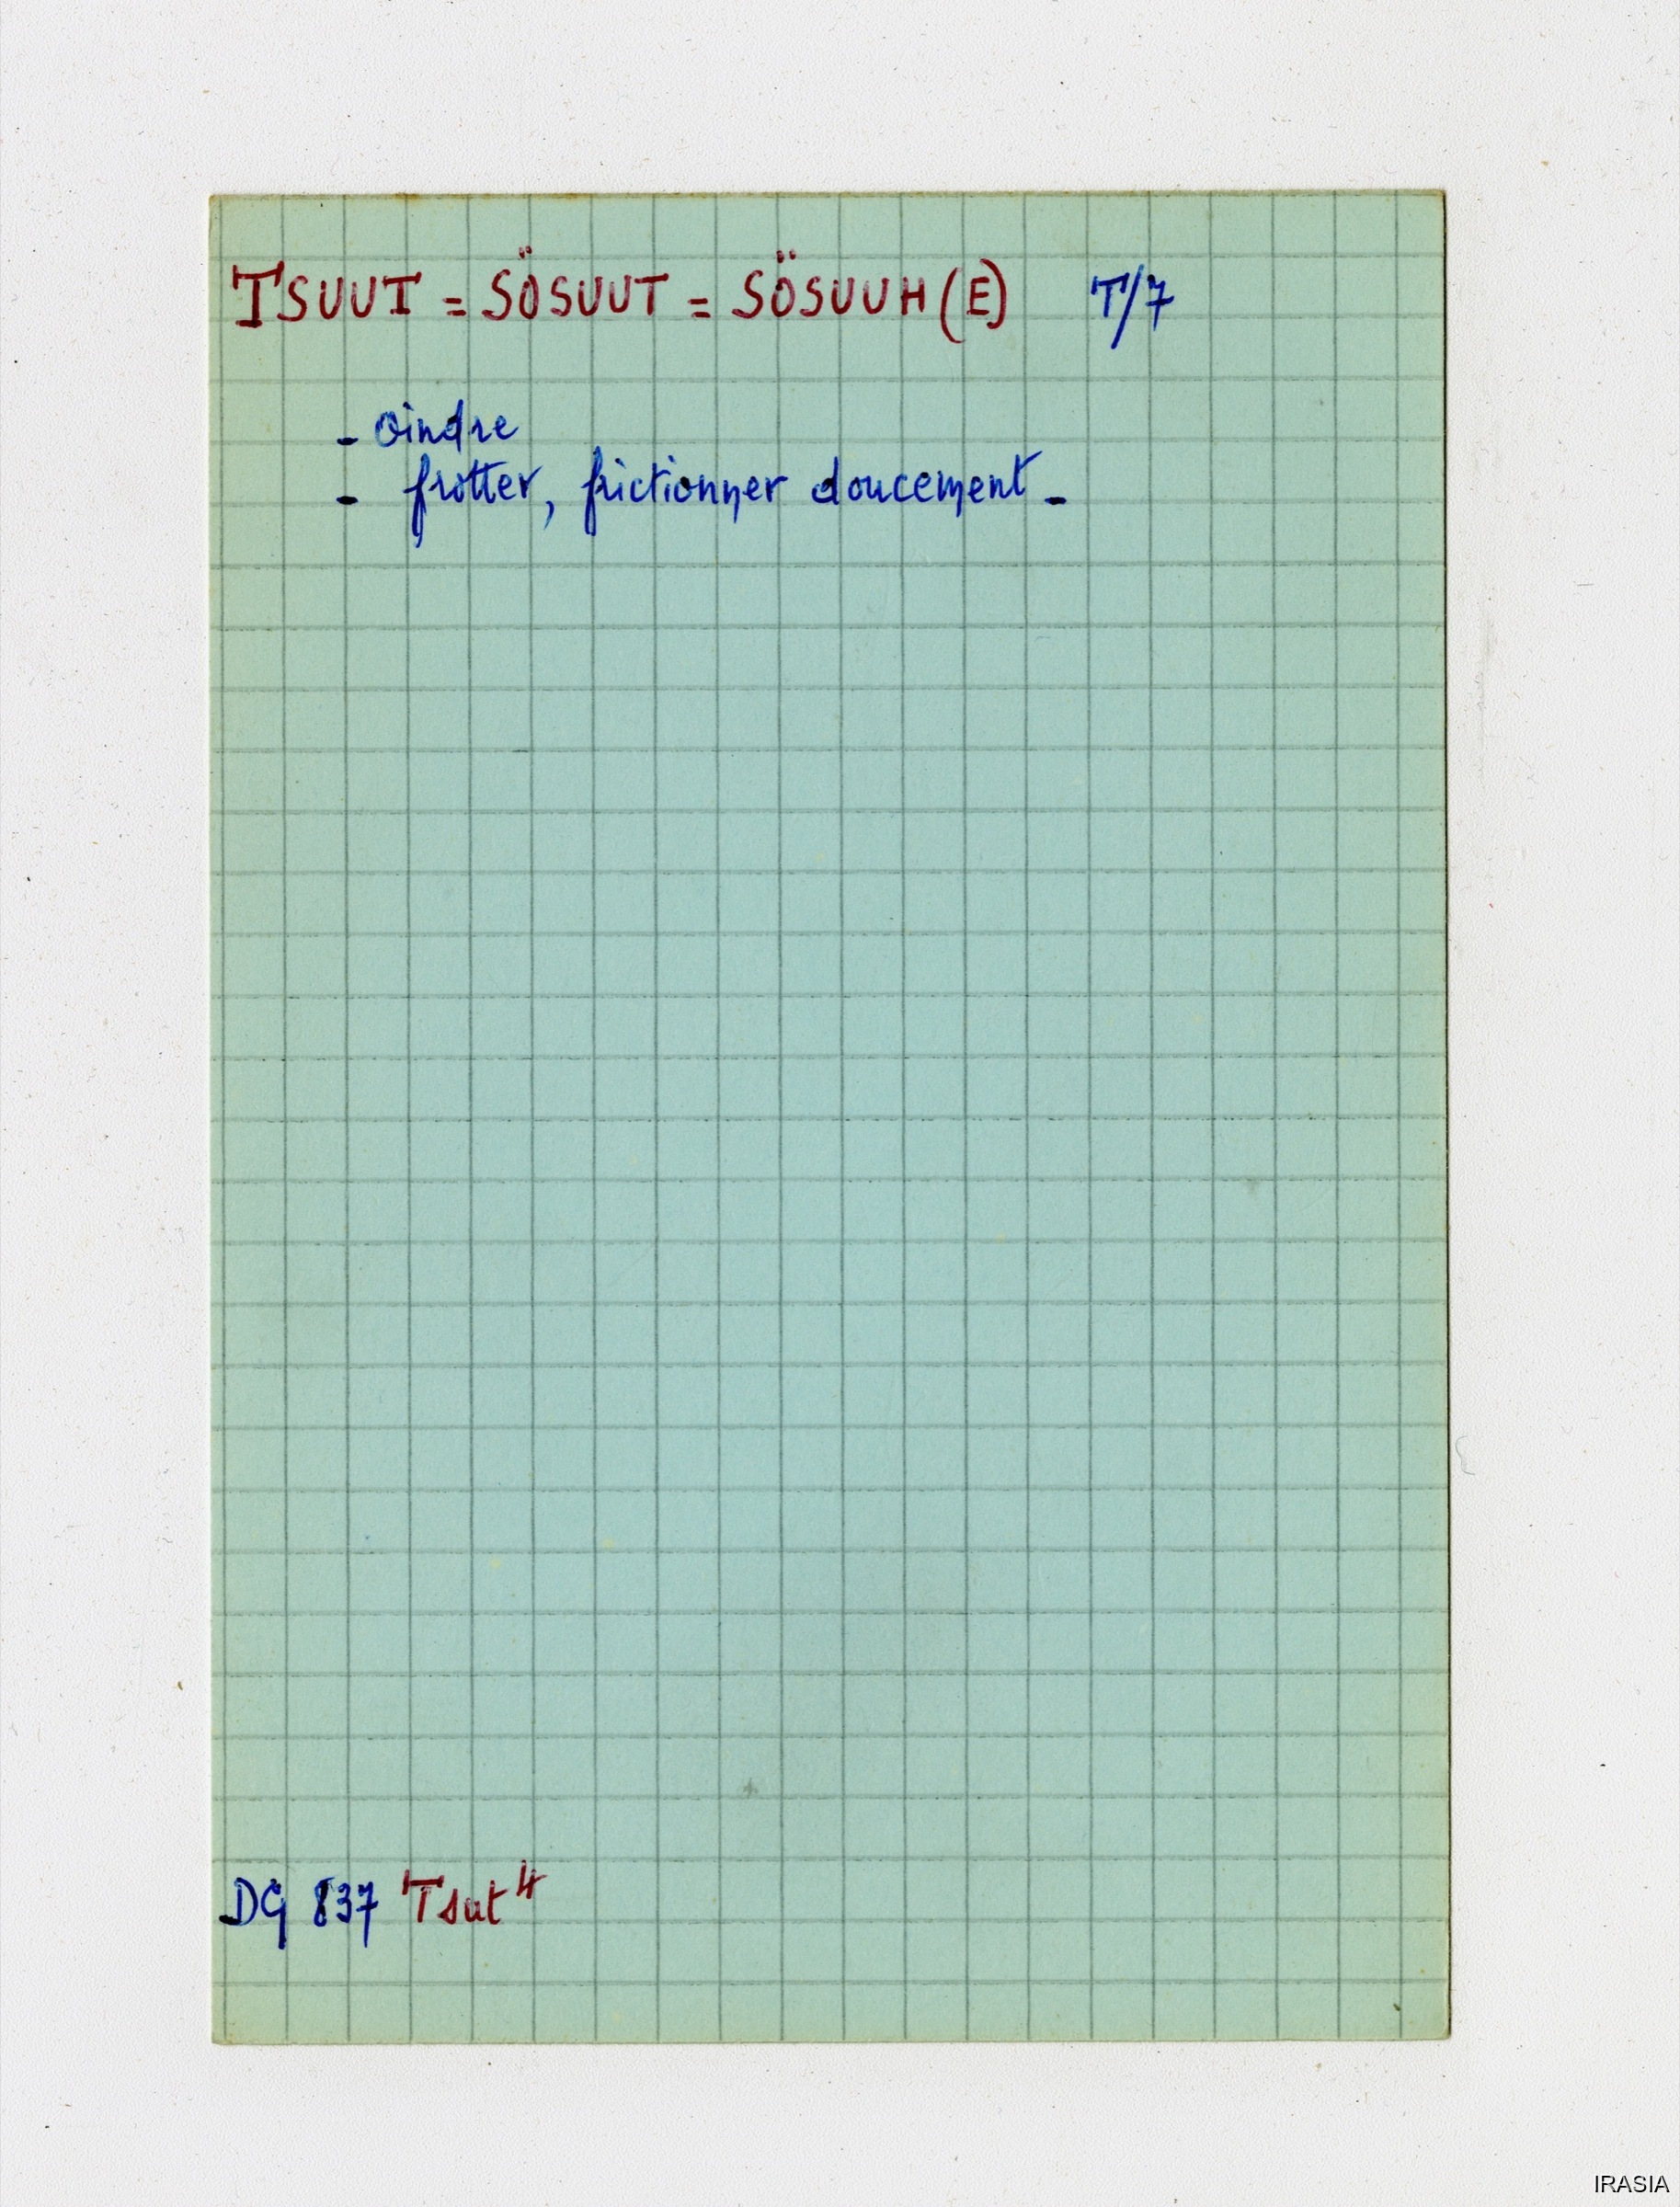 TSUUT = SÖSUUT = SÖSUUH (E) T/7
- oindre
- frotter, frictionner doucement -
DG 837 Tsut 4
IRASIA